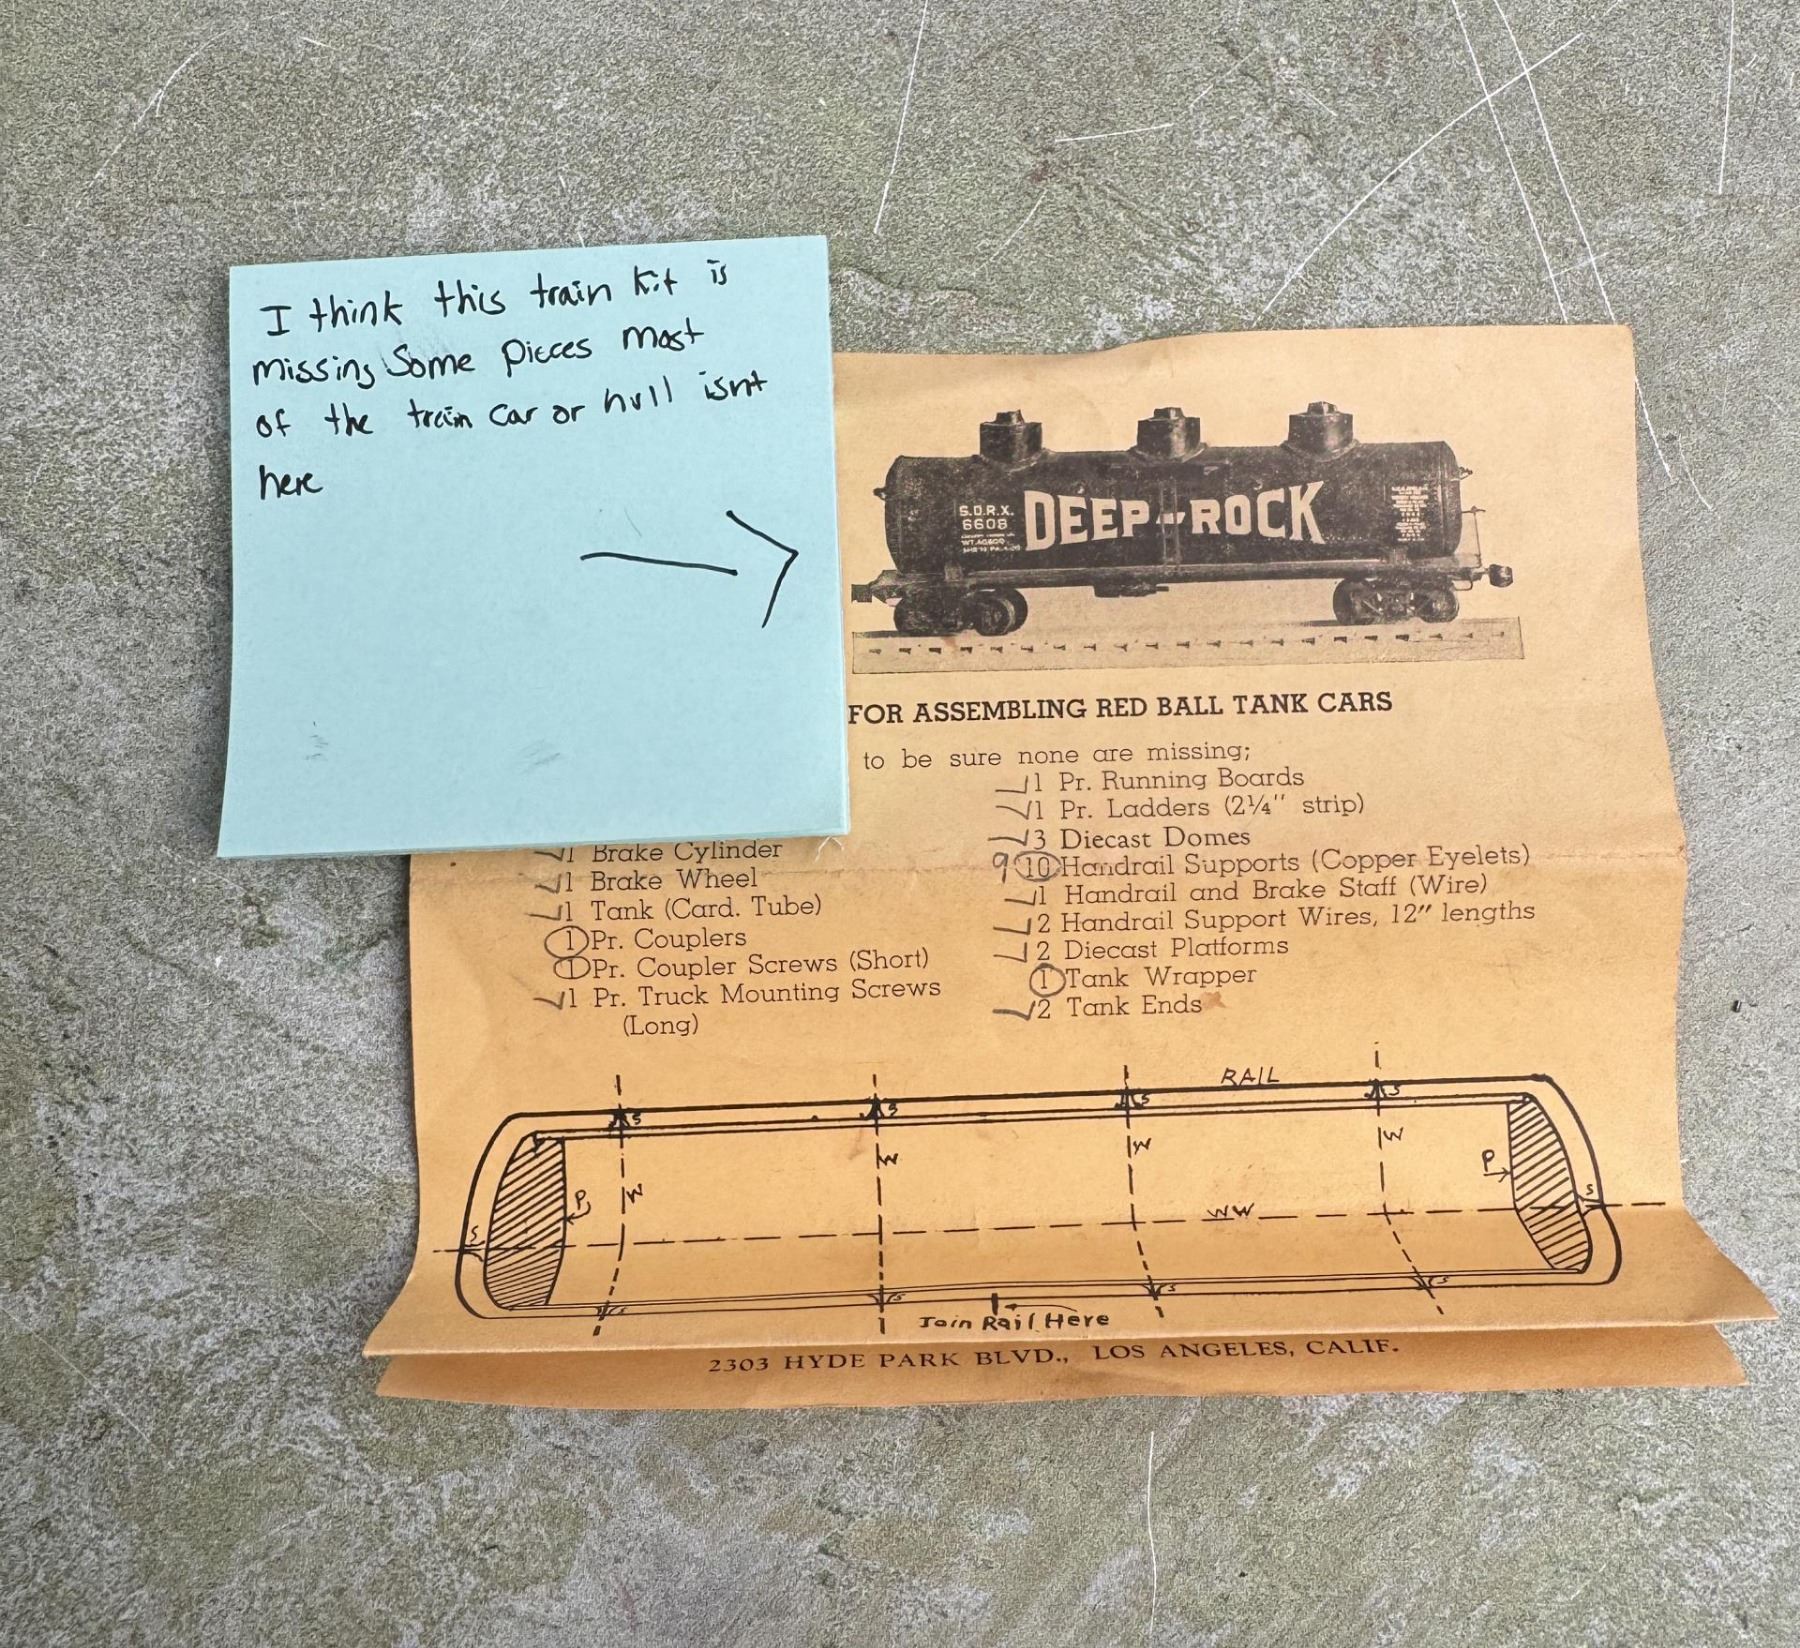 I think this train kit is
missing some pieces most
of the train car or hull isnt
here
S.D.R.X.
6608
DEEP-ROCK
FOR ASSEMBLING RED BALL TANK CARS
to be sure none are missing;
1 Brake Cylinder
1 Brake Wheel
1 Tank (Card. Tube)
1 Pr. Couplers
1 Pr. Coupler Screws (Short)
1 Pr. Truck Mounting Screws
(Long)
1 Pr. Running Boards
1 Pr. Ladders (2¼" strip)
3 Diecast Domes
9 10 Handrail Supports (Copper Eyelets)
1 Handrail and Brake Staff (Wire)
2 Handrail Support Wires, 12" lengths
2 Diecast Platforms
1 Tank Wrapper
2 Tank Ends
RAIL
S S S S
W W W W
P P
S WW S
S S S S
Join Rail Here
2303 HYDE PARK BLVD., LOS ANGELES, CALIF.